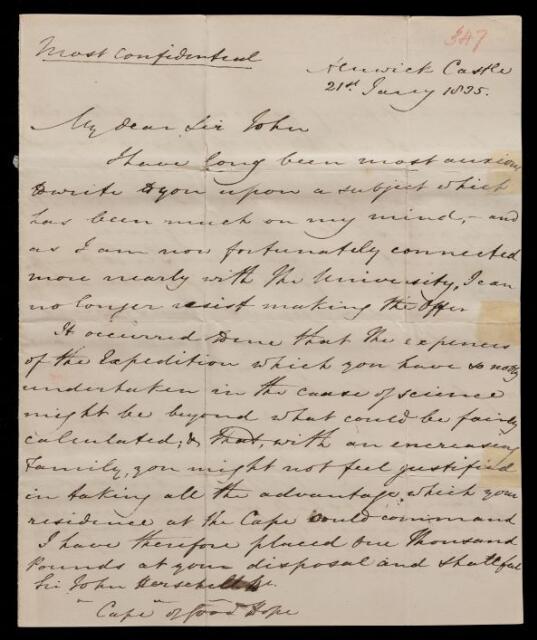 347
Most Confidential
Alnwick Castle
21st Jany 1835.
My dear Sir John
I have long been most anxious
to write to you upon a subject which
has been much on my mind, – and
as I am now fortunately connected
more nearly with the University, I can
no longer resist making the offer
It occurred to me that the expences
of the Expedition which you have so nobly
undertaken in the cause of science
might be beyond what could be fairly
calculated; & That, with an encreasing
Family, you might not feel justified
in taking all the advantage, which your
residence at the Cape could command
I have therefore placed One Thousand
Pounds at your disposal and shall feel
Sir John Herschell &c.
Cape of Good Hope